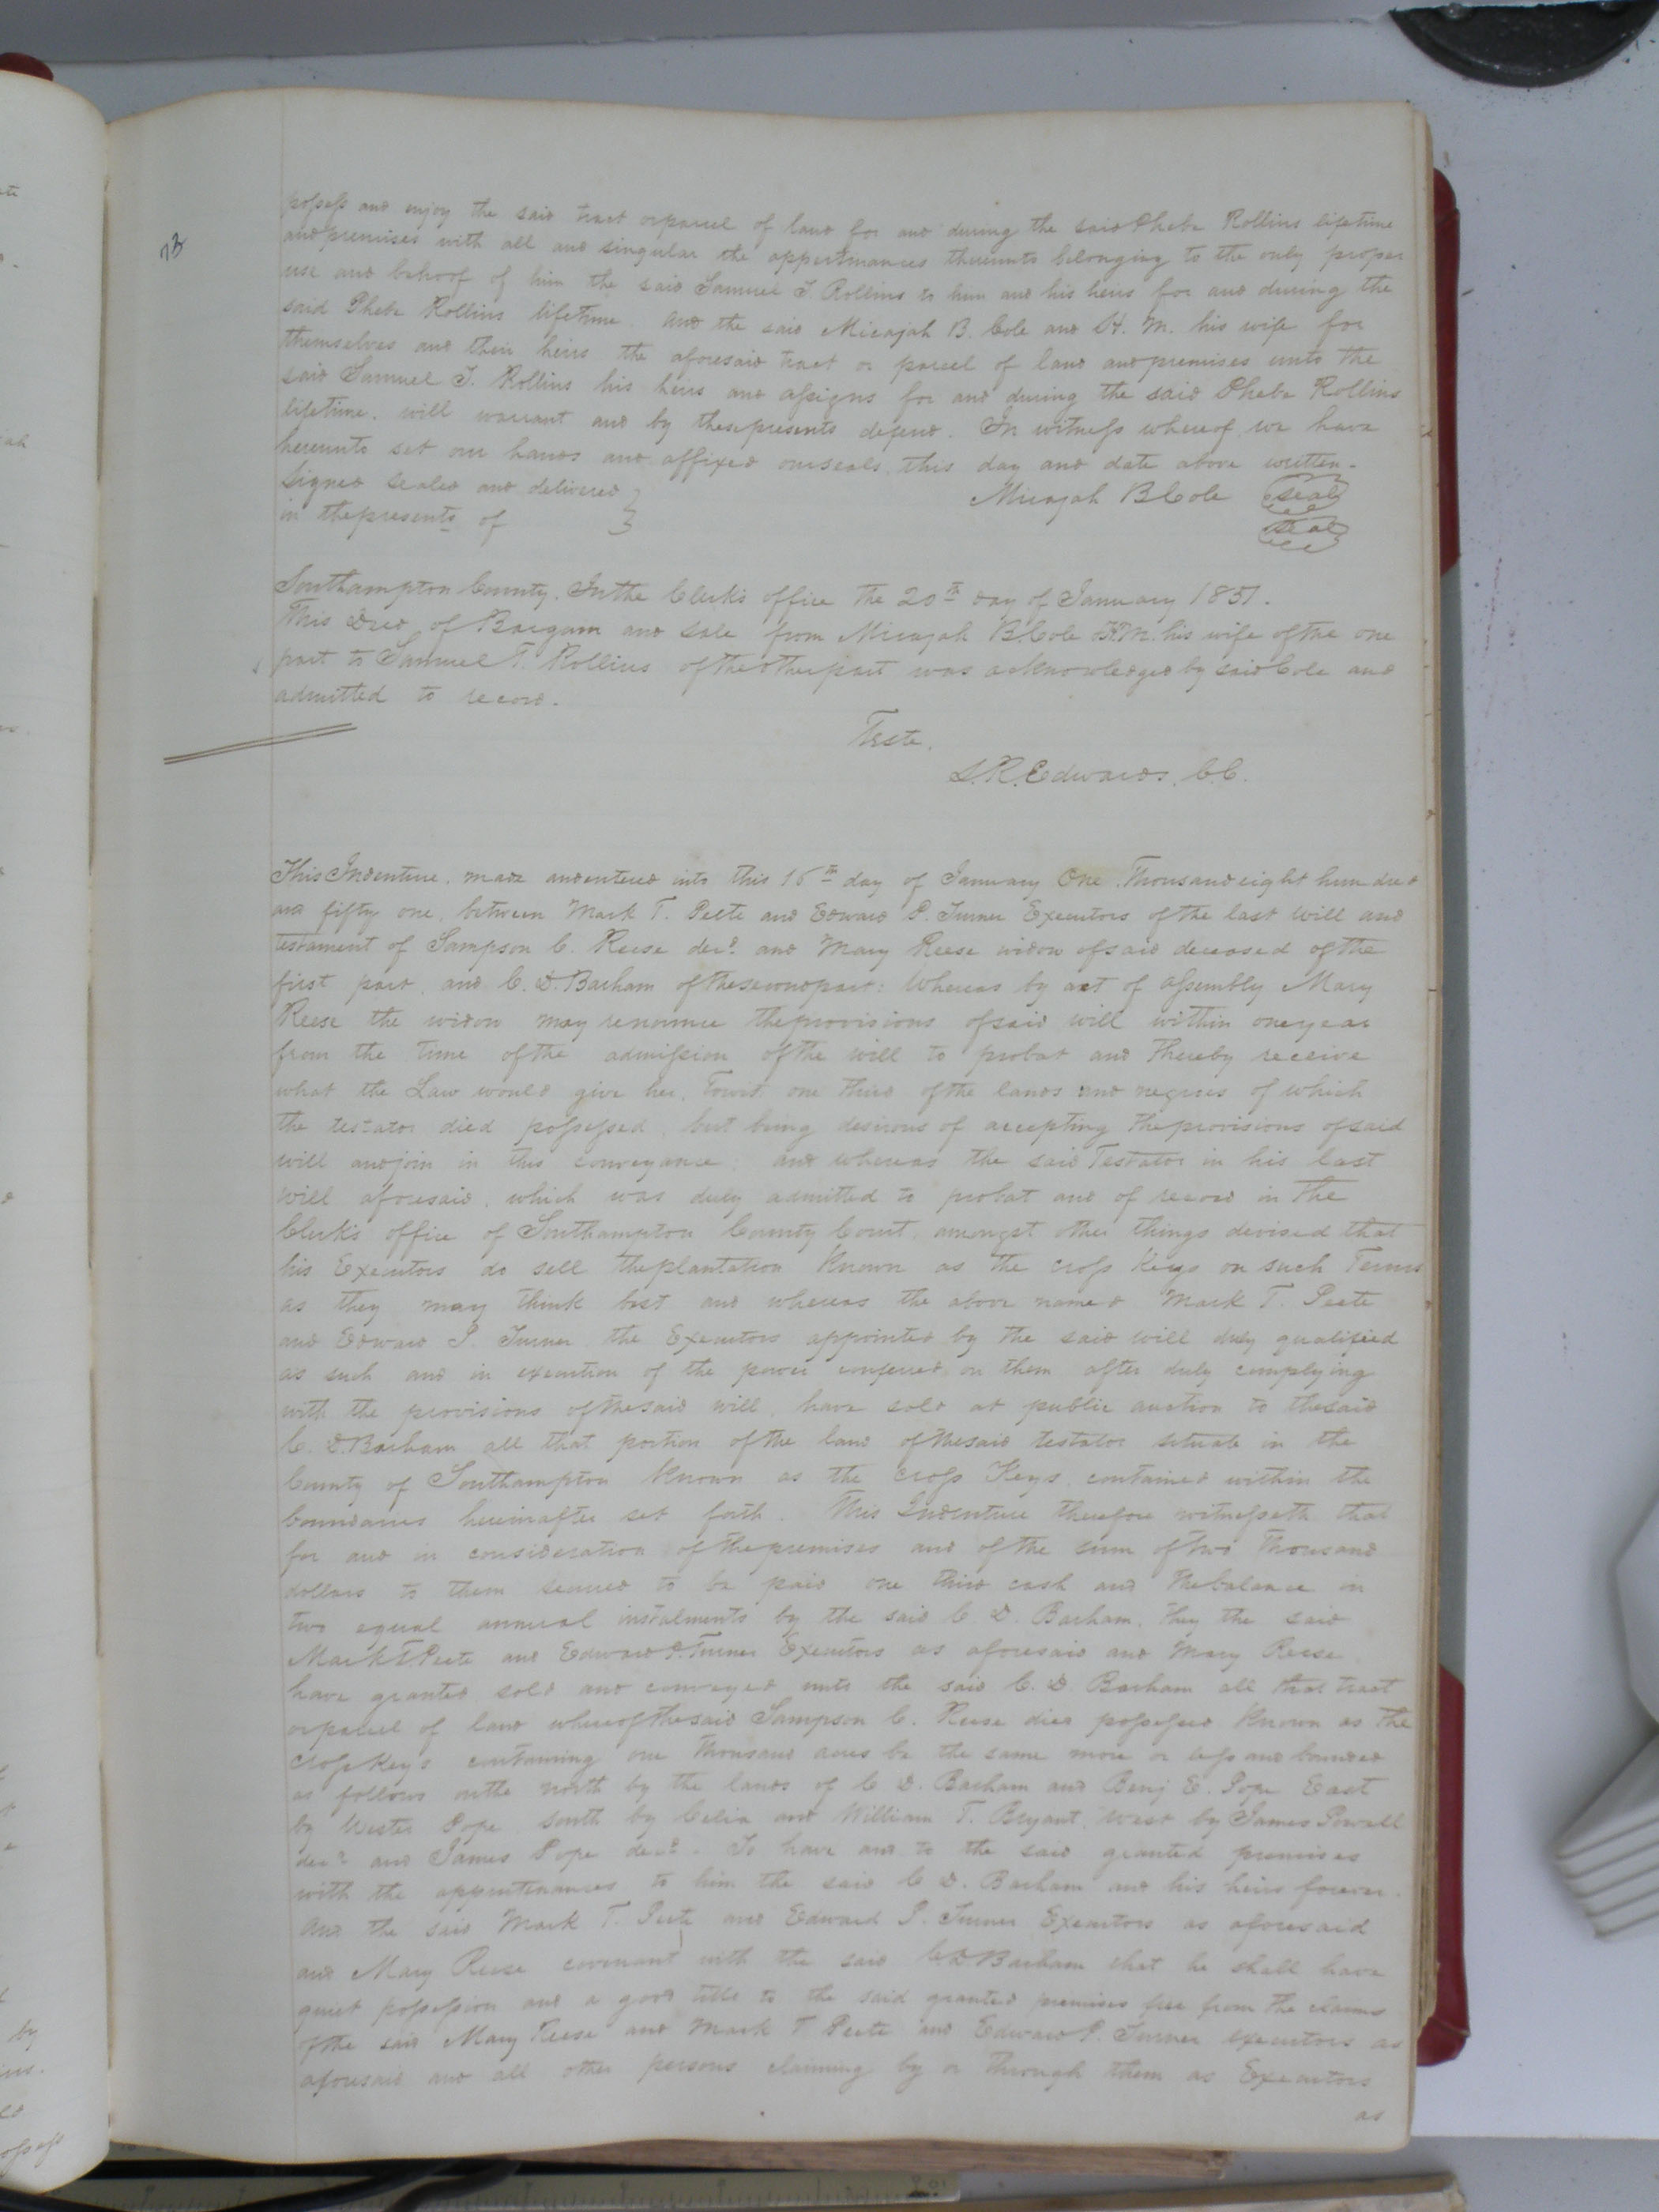 73
possess and enjoy the said tract or parcel of land for and during the said Pheba Rollins lifetime
and premises with all and singular the appertinances thereunto belonging to the only proper
use and behoof of him the said Samuel T. Rollins to him and his heirs for and during the
said Pheba Rollins lifetime. And the said Micajah B. Cole and H. M. his wife for
themselves and their heirs the aforesaid tract or parcel of land and premises unto the
said Samuel T. Rollins his heirs and assigns for and during the said Pheba Rollins
lifetime. will warrant and by these presents defend. In witness whereof we have
hereunto set our hands and affixed our seals this day and date above written.
Signed sealed and delivered } Micajah B Cole seal
in the presents of } seal
Southampton County. In the Clerk's office the 20th day of January 1851.
This Deed of Bargain and Sale from Micajah B. Cole & H.M. his wife of the one
part to Samuel T. Rollins of the other part was acknowledged by said Cole and
admitted to record.
Teste.
L.R. Edwards. C.C.
This Indenture. made and entered into this 16th day of January One Thousand eight hundred
and fifty one, between Mark T. Peete and Edward P. Turner Executors of the last will and
testament of Sampson C. Reese decd. and Mary Reese widow of said deceased of the
first part, and C. D. Barham of the second part: Whereas by act of assembly Mary
Reese the widow may renounce the provisions of said will within one year
from the time of the admission of the will to probat and thereby receive
what the Law would give her. Towit: one third of the lands and negroes of which
the testator died possessed, but being desirous of accepting the provisions of said
will and join in this conveyance; and whereas the said Testator in his last
will aforesaid, which was duly admitted to probat and of record in the
Clerk's office of Southampton County Court, amongst other things devised that
his Executors do sell the plantation Known as the cross Keys on such Terms
as they may think best and whereas the above named Mark T. Peete
and Edward P. Turner the Executors appointed by the said will duly qualified
as such and in execution of the power conferred on them after duly complying
with the provisions of the said will, have sold at public auction to the said
C. D. Barham all that portion of the land of the said testator situate in the
County of Southampton Known as the cross Keys, contained within the
boundaries hereinafter set forth. This Indenture therefore witnesseth that
for and in consideration of the premises and of the sum of two Thousand
dollars to them secured to be paid one third cash and the balance in
two equal annual instalments by the said C. D. Barham. They the said
Mark T. Peete and Edward P. Turner Executors as aforesaid and Mary Reese
have granted, sold and conveyed unto the said C. D Barham all that tract
or parcel of land whereof the said Sampson C. Reese died possessed Known as The
cross Keys containing one thousand acres be the same more or less and bounded
as follows on the north by the lands of C D. Barham and Benj E. Pope East
by Wester Pope south by Celia and William T. Bryant, West by James Powell
decd. and James Pope decd. To have and to the said granted premises
with the appurtenances to him the said C D. Barham and his heirs forever.
And the said Mark T. Peete and Edward P. Turner Executors as aforesaid
and Mary Reese covenant with the said C D Barham that he shall have
quiet possession and a good title to the said granted premises free from the claims
of the said Mary Reese and Mark T Peete and Edward P. Turner executors as
aforesaid and all other persons claiming by or through them as Executors
as